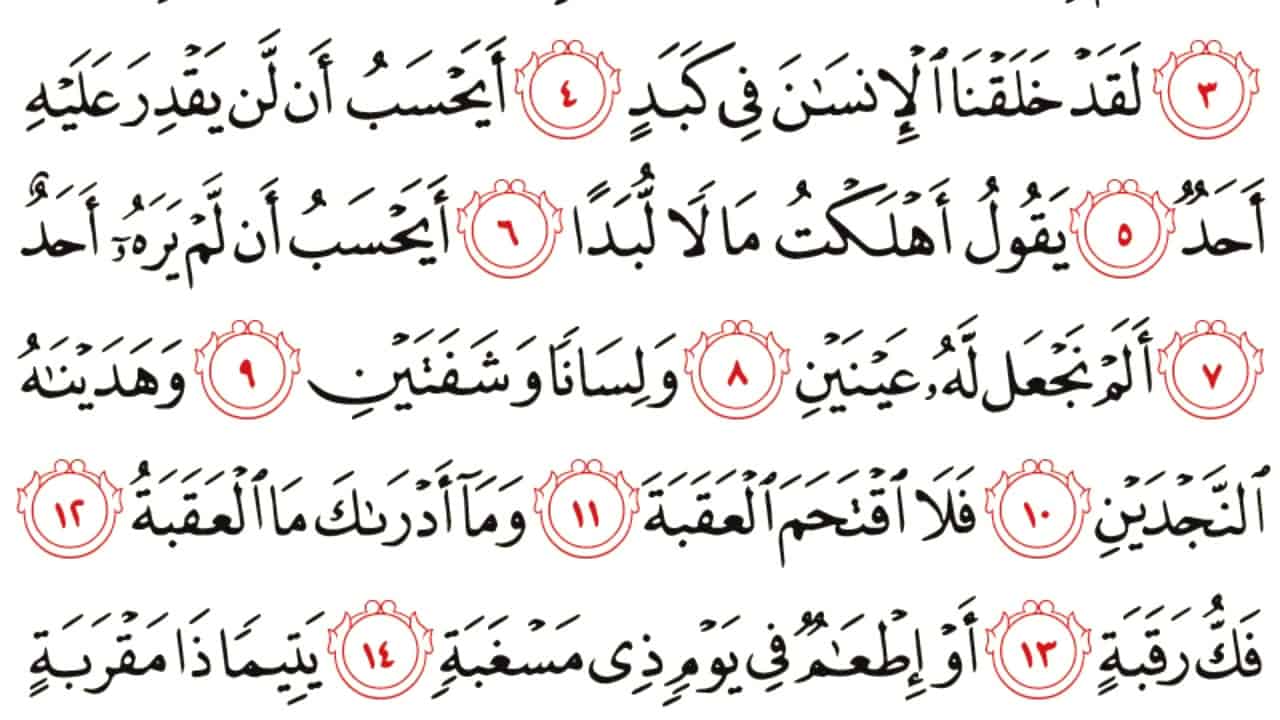 ٣ لَقَدۡ خَلَقۡنَا ٱلۡإِنسَٰنَ فِي كَبَدٍ ٤ أَيَحۡسَبُ أَن لَّن يَقۡدِرَ عَلَيۡهِ
أَحَدٞ ٥ يَقُولُ أَهۡلَكۡتُ مَالٗا لُّبَدًا ٦ أَيَحۡسَبُ أَن لَّمۡ يَرَهُۥٓ أَحَدٌ
٧ أَلَمۡ نَجۡعَل لَّهُۥ عَيۡنَيۡنِ ٨ وَلِسَانٗا وَشَفَتَيۡنِ ٩ وَهَدَيۡنَٰهُ
ٱلنَّجۡدَيۡنِ ١٠ فَلَا ٱقۡتَحَمَ ٱلۡعَقَبَةَ ١١ وَمَآ أَدۡرَىٰكَ مَا ٱلۡعَقَبَةُ ١٢
فَكُّ رَقَبَةٍ ١٣ أَوۡ إِطۡعَٰمٞ فِي يَوۡمٖ ذِي مَسۡغَبَةٖ ١٤ يَتِيمٗا ذَا مَقۡرَبَةٍ